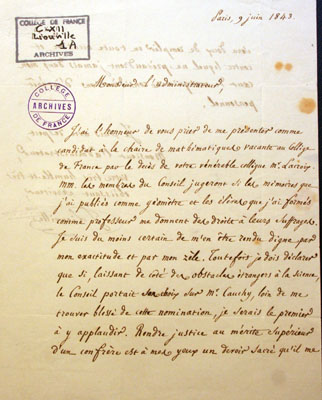 COLLEGE DE FRANCE
C-XII
Liouville
1A
ARCHIVES
Paris, 9 juin 1843.
Monsieur l'administrateur,
COLLÈGE
ARCHIVES
DE FRANCE
J'ai l'honneur de vous prier de me présenter comme
candidat à la chaire de mathématiques vacante au Collège
de France par le décès de votre vénérable collègue Mr. Lacroix.
MM. les membres du Conseil jugeront si les mémoires que
j'ai publiés comme géomètre et les élèves que j'ai formés
comme professeur me donnent des droits à leurs suffrages.
Je suis du moins certain de m'en être rendu digne par
mon exactitude et par mon zèle. Toutefois je dois déclarer
que si, laissant de côté des obstacles étrangers à la science,
le Conseil portait son choix sur Mr. Cauchy, loin de me
trouver blessé de cette nomination, je serais le premier
à y applaudir. Rendre justice au mérite supérieur
d'un confrère est à mes yeux un devoir sacré qu'il me